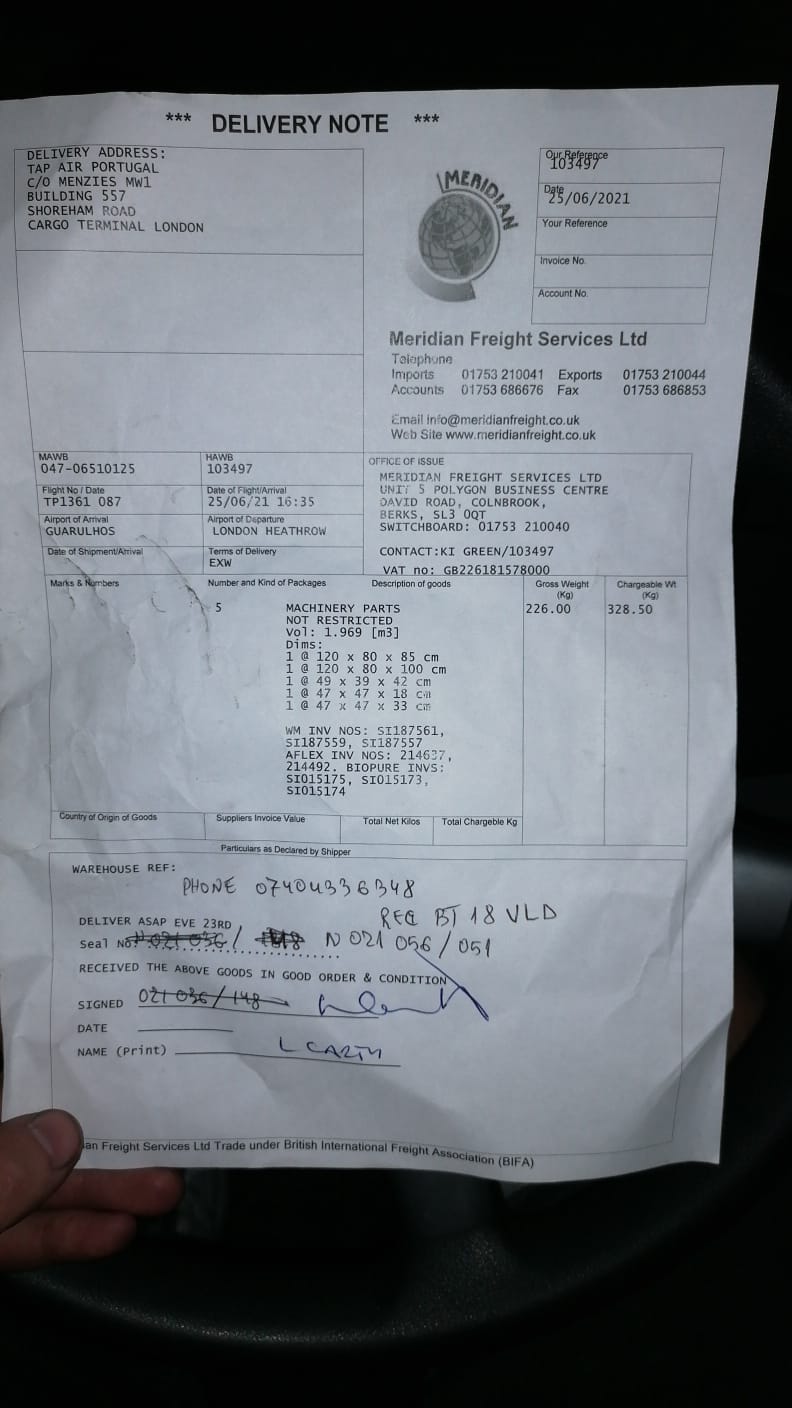 *** DELIVERY NOTE ***
DELIVERY ADDRESS:
TAP AIR PORTUGAL
C/O MENZIES MW1
BUILDING 557
SHOREHAM ROAD
CARGO TERMINAL LONDON
MERIDIAN
Our Reference
103497
Date
25/06/2021
Your Reference
Invoice No.
Account No.
Meridian Freight Services Ltd
Telephone
Imports 01753 210041 Exports 01753 210044
Accounts 01753 686676 Fax 01753 686853
Email info@meridianfreight.co.uk
Web Site www.meridianfreight.co.uk
MAWB HAWB
047-06510125 103497
Flight No / Date Date of Flight/Arrival
TP1361 087 25/06/21 16:35
Airport of Arrival Airport of Departure
GUARULHOS LONDON HEATHROW
Date of Shipment/Arrival Terms of Delivery
EXW
OFFICE OF ISSUE
MERIDIAN FREIGHT SERVICES LTD
UNIT 5 POLYGON BUSINESS CENTRE
DAVID ROAD, COLNBROOK,
BERKS, SL3 0QT
SWITCHBOARD: 01753 210040
CONTACT:KI GREEN/103497
VAT no: GB226181578000
Marks & Numbers Number and Kind of Packages Description of goods Gross Weight (Kg) Chargeable Wt (Kg)
5 MACHINERY PARTS 226.00 328.50
NOT RESTRICTED
Vol: 1.969 [m3]
Dims:
1 @ 120 x 80 x 85 cm
1 @ 120 x 80 x 100 cm
1 @ 49 x 39 x 42 cm
1 @ 47 x 47 x 18 cm
1 @ 47 x 47 x 33 cm
WM INV NOS: SI187561,
SI187559, SI187557
AFLEX INV NOS: 214637,
214492. BIOPURE INVS:
SI015175, SI015173,
SI015174
Country of Origin of Goods Suppliers Invoice Value Total Net Kilos Total Chargeable Kg
Particulars as Declared by Shipper
WAREHOUSE REF:
PHONE 07404336348
DELIVER ASAP EVE 23RD REG BT 18 VLD
Seal No N 021 056 / 051
RECEIVED THE ABOVE GOODS IN GOOD ORDER & CONDITION
SIGNED 021 036/148
DATE
NAME (Print)
an Freight Services Ltd Trade under British International Freight Association (BIFA)